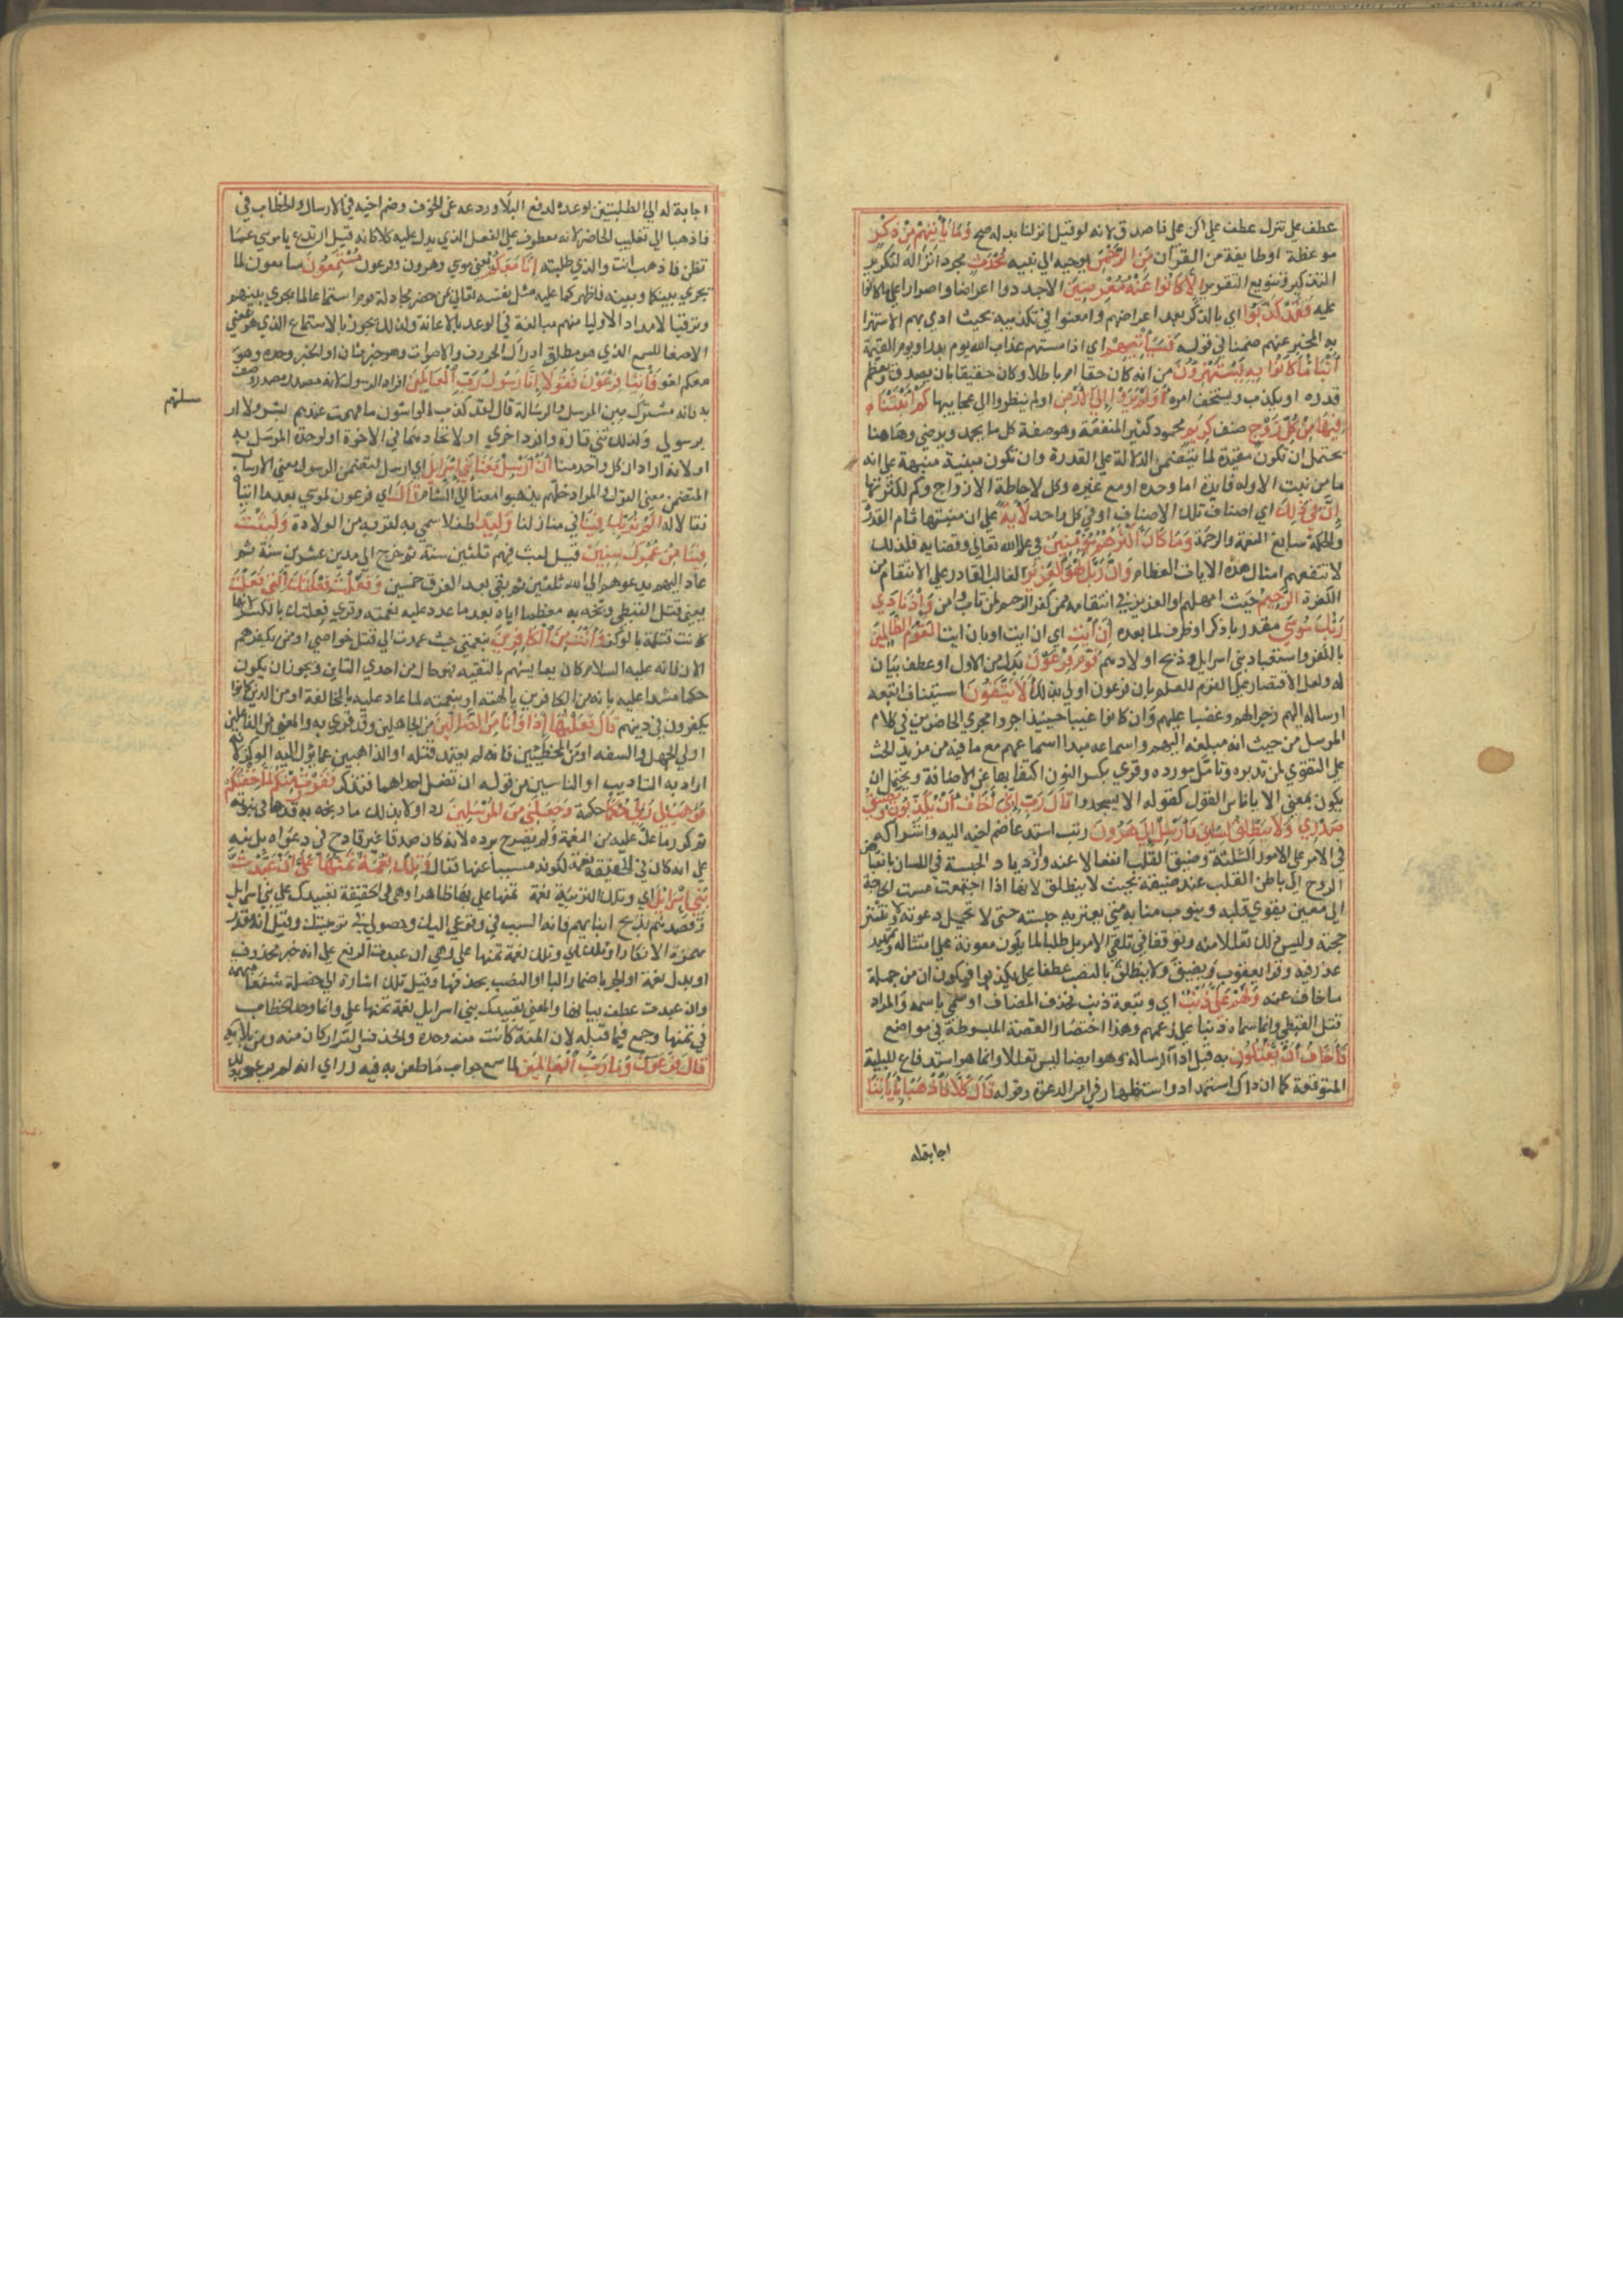 عطف على تنزل عطف على اكن على فاصدق لانه لو قيل انزلنا بدله صح وَمَا يَأْتِيهِمْ مِنْ ذِكْرٍ
موعظة او طايفة من القرآن مِنَ الرَّحْمٰنِ يوحيه الى نبيه مُحْدَثٍ مجرد انزاله لتكرير
التذكير وتنويع التقرير اِلَّا كَانُوا عَنْهُ مُعْرِضِينَ الا جددوا اعراضا واصرارا على ما كانوا
عليه فَقَدْ كَذَّبُوا اي بالذكر بعد اعراضهم وامعنوا في تكذيبه بحيث ادى بهم الى الاستهزا
به المخبر عنهم ضمنا في قوله فَسَيَأْتِيهِمْ اي اذا مستهم عذاب الله يوم بدر او يوم القيمة
أَنْبَاءُ مَا كَانُوا بِهِ يَسْتَهْزِؤُنَ من انه كان حقا ام باطلا وكان حقيقا بان يصدق ويعظم
قدره او يكذب ويستخف امره أَوَلَمْ يَرَوْا اِلَى الْاَرْضِ اولم ينظروا الى عجايبها كَمْ أَنْبَتْنَا
فِيهَا مِنْ كُلِّ زَوْجٍ صنف كَرِيمٍ محمود كثير المنفعة وهو صفة كل ما يحمد ويرضى وهاهنا
يحتمل ان تكون مقيدة لما يتضمن الدلالة على القدرة وان تكون مبينة منبهة على انه
ما من نبت الا وله فايدة اما وحده او مع غيره وكل لاحاطة الازواج وكم لكثرتها
إِنَّ فِي ذٰلِكَ اي اصناف تلك الاصناف او في كل واحد لَآيَةً على ان منبتها تام القدرة
والحكمة سابغ النعمة والرحمة وَمَا كَانَ أَكْثَرُهُمْ مُؤْمِنِينَ في علم الله تعالى وقضايه فلذلك
لا تنفعهم امثال هذه الايات العظام وَإِنَّ رَبَّكَ لَهُوَ الْعَزِيزُ الغالب القادر على الانتقام من
الكفرة الرَّحِيمُ حيث امهلهم او العزيز في انتقامه ممن كفر الرحيم لمن تاب وامن وَإِذْ نَادَى
رَبُّكَ مُوسَى مقدر باذكر او ظرف لما بعده أَنِ ائْتِ اي ان ايت او بان ايت الْقَوْمَ الظَّالِمِينَ
بالكفر واستعباد بني اسرايل وذبح اولادهم قَوْمَ فِرْعَوْنَ بدل من الاول او عطف بيان
له ولعل الاقتصار على القوم للعلم بان فرعون اولى بذلك أَلَا يَتَّقُونَ استيناف اتبعه
ارساله اليهم زجرا لهم وغضبا عليهم وان كانوا غيبا حينيذ اجروا مجرى الحاضرين في كلام
المرسل من حيث انه مبلغه اليهم واسماعه مبدا اسماعهم مع ما فيه من مزيد الحث
على التقوى لمن تدبره وتامل مورده وقرئ بكسر النون اكتفا بها عن الاضافة ويحتمل ان
يكون بمعنى الا يا ناس القول كقوله الا يسجدوا قَالَ رَبِّ إِنِّي أَخَافُ أَنْ يُكَذِّبُونِ وَيَضِيقُ
صَدْرِي وَلَا يَنْطَلِقُ لِسَانِي فَأَرْسِلْ إِلَى هٰرُونَ رتب استدعا ضم اخيه اليه واشراكه
في الامر على الامور الثلثة وضيق القلب انفعالا عنه وازدياد الحبسة في اللسان بانقباض
الروح الى باطن القلب عند ضيقه بحيث لا ينطلق لانها اذا اجتمعت مست الحاجة
الى معين يقوي قلبه وينوب منابه متى يعتريه حبسته حتى لا تختل دعوته ولا تنبتر
حجته وليس ذلك تعللا منه وتوقفا في تلقي الامر بل طلبا لما يكون معونة على امتثاله وتمهيد
عذر فيه وقرا يعقوب وَيَضِيقَ وَلَا يَنْطَلِقَ بالنصب عطفا على يكذبوا فيكون ان من جملة
ما خاف عنه وَلَهُمْ عَلَيَّ ذَنْبٌ اي وتبعة ذنب فحذف المضاف او سمي باسمه والمراد
قتل القبطي وانما سماه ذنبا على زعمهم وهذا اختصار القصة المبسوطة في مواضع
فَأَخَافُ أَنْ يَقْتُلُونِ به قبل اداء الرسالة وهو ايضا ليس تعللا وانما هو استدفاع للبلية
المتوقعة كما ان ذاك استمداد واستظهار في امر الدعوة وقوله قَالَ كَلَّا فَاذْهَبَا بِآيَاتِنَا
اجابة له
اجابة له الى الطلبتين لوعده لدفع البلا وردعه عن الخوف وضم اخيه في الارسال والخطاب في
فاذهبا الى تغليب الحاضر لانه معطوف على الفعل الذي يدل عليه كلا كانه قيل ارتدع يا موسى عما
تظن فاذهب انت والذي طلبته إِنَّا مَعَكُمْ يعني موسى وهرون وفرعون مُسْتَمِعُونَ سامعون لما
يجري بينكما وبينه فاظهركما عليه مثل نفسه تعالى بمن حضر مجادلة قوم استماعا لما يجري بينهم
وترقبا لامداد الاوليا منهم مبالغة في الوعد بالاعانة ولذلك تجوز بالاستماع الذي هو بمعنى
الاصغا للسمع الذي هو مطلق ادراك الحروف والاصوات وهو خبر ثان او الخبر وحده وهو
معكم لغو فَأْتِيَا فِرْعَوْنَ فَقُولَا إِنَّا رَسُولُ رَبِّ الْعَالَمِينَ افراد الرسول لانه مصدر وصف
به فانه مشترك بين المرسل والرسالة قال لقد كذب الواشون ما فهمت عندهم بسر ولا ار
سلتهم
برسول ولذلك ثنى تارة وافرد اخرى او لاتحادهما في الاخوة او لوحدة المرسل به
او لانه اراد ان كل واحد منا أَنْ أَرْسِلْ مَعَنَا بَنِي إِسْرَائِلَ اي ارسل لتضمن الرسول معنى الارسال
المتضمن معنى القول والمراد خلهم يذهبوا معنا الى الشام قَالَ اي فرعون لموسى بعدما اتياه
فقالا له أَلَمْ نُرَبِّكَ فِينَا في منازلنا وَلِيدًا طفلا سمي به لقربه من الولادة وَلَبِثْتَ
فِينَا مِنْ عُمُرِكَ سِنِينَ قيل لبث فيهم ثلثين سنة ثم خرج الى مدين عشر سنين ثم
عاد اليهم يدعوهم الى الله ثلثين ثم بقي بعد الغرق خمسين وَفَعَلْتَ فَعْلَتَكَ الَّتِي فَعَلْتَ
يعني قتل القبطي وبخه به معظما اياه بعد ما عدد عليه نعمته وقرئ فعلتك بالكسر لانها
كانت قتلة بالوكز وَأَنْتَ مِنَ الْكَافِرِينَ بنعمتي حيث عمدت الى قتل خواصي او ممن يكفرهم
الان فانه عليه السلام كان يعايشهم بالتقية فهو حال من احدى التاين ويجوز ان يكون
حكما مبتدا عليه بانه من الكافرين بالهته او بنعمته لما عاد عليه بالمخالفة او من الذين كانوا
يكفرون في دينهم قَالَ فَعَلْتُهَا إِذًا وَأَنَا مِنَ الضَّالِّينَ من الجاهلين وقد قرئ به والمعنى من الفاعلين
اولي الجهل والسفه او من المخطئين فانه لم يعتمد قتله او الذاهبين عما يؤل اليه الوكز لانه
اراد به التاديب او الناسين من قوله ان تضل احداهما فتذكر فَفَرَرْتُ مِنْكُمْ لَمَّا خِفْتُكُمْ
فَوَهَبَ لِي رَبِّي حُكْمًا حكمة وَجَعَلَنِي مِنَ الْمُرْسَلِينَ رد اولا بذلك ما وبخه به قدحا في نبوته
ثم كر على ما عد عليه من النعمة ولم يصرح برده لانه كان صدقا غير قادح في دعواه بل نبه
على انه كان في الحقيقة نقمة لكونه مسببا عنها فقال وَتِلْكَ نِعْمَةٌ تَمُنُّهَا عَلَيَّ أَنْ عَبَّدْتَ
بَنِي إِسْرَائِلَ اي وتلك التربية نعمة تمنها علي بها ظاهرا وهي في الحقيقة تعبيدك على بني اسرايل
وقصدهم بذبح ابنايهم فانه السبب في وقوعي اليك وحصولي في تربيتك وقيل انه مقدر
بهمزة الانكار اي او تلك نعمة تمنها علي وهي ان عبدت الرفع على انه خبر محذوف
او بدل نعمة او الجر باضمار البا او النصب بحذفها وقيل تلك اشارة الى خصلة شنعا مبهمة
وان عبدت عطف بيانها والمعنى تعبيدك بني اسرايل نعمة تمنها علي وانما وحد الخطاب
في تمنها وجمع فيما قبله لان المنة كانت منه وحده والخوف والفرار كان منه ومن ملايه
قَالَ فِرْعَوْنُ وَمَا رَبُّ الْعَالَمِينَ لما سمع جواب ما طعن به فيه وراى انه لم يرعو بذلك